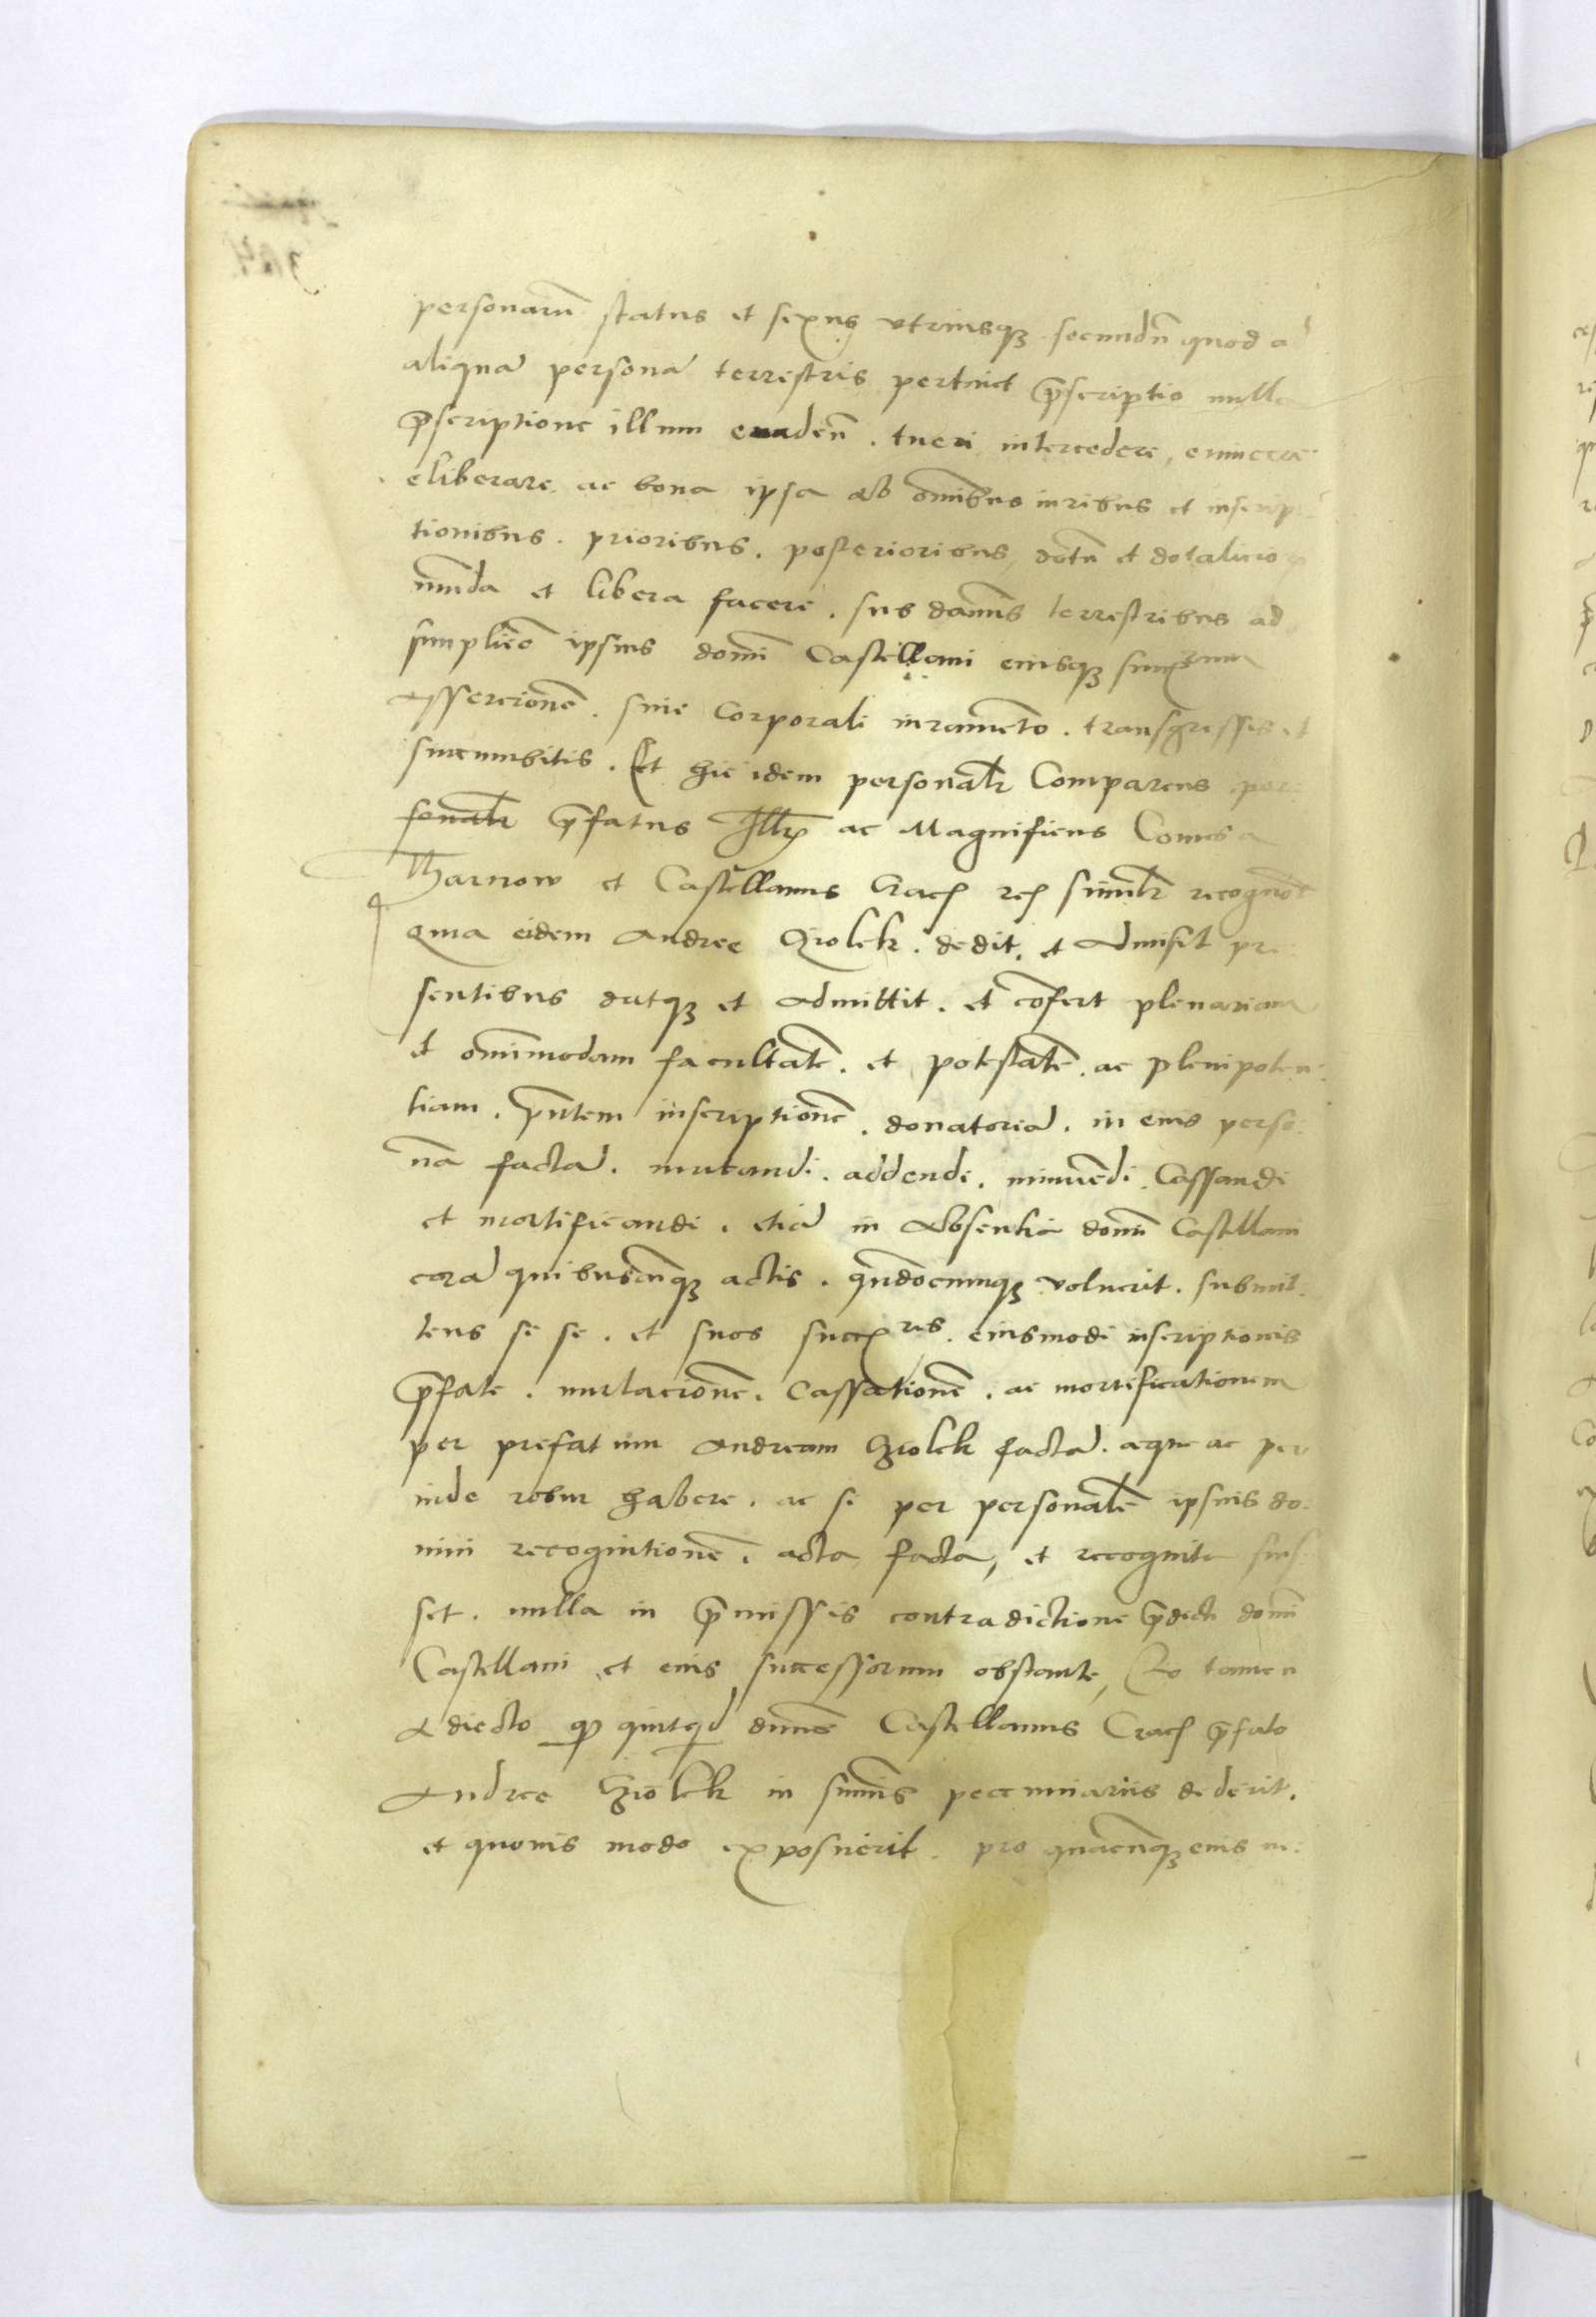 personarū status et sexus utriusq3 secundū quod ad
aliquā personā terrestris pertinet p̄scriptio nulla
p̄scriptione illum evadeñ . tueri intercedere, evincere
eliberare ac bona ipsa ab om̄ibus iuribus et inscrip
tionibus . prioribus . posterioribus, dotū et dotalicio
mūda et libera facere . sub damnis terrestribus ad
simplicē ipsius domī Castellani eiusq3 succ̄rum
Assercionē . sine Corporali iuramēto . transgressis et
succumbitis . Et hic idem personalr Comparens per
sonalr p̄fatus Illr̄ ac Magnificus Comes a
Tharnow et Castellanus Crac̄ rec̄ similr recognovit
Quia eidem Andree Gyolek . dedit . et Admisit pre
sentibus datq3 et Admittit . et cōfert plenariam
et om̄imodam facultatē . et potestatē . ac plenipoten
tiam . p̄ntem inscriptionē . donatoriā . in eius perso
nā factā . mutandi . addendi . minuēdi . Cassandi
et mortificandi . etiā in Absentia domī Castellani
corā quibuscūq3 actis . quādocumq3 voluerit . submit
tens se se . et suos succ̄res . eiusmodi inscriptionis
p̄fate . mutacionē . Cassationē . ac mortificationem
per prefatum Andream Gyolek factā . aeque ac per
inde robur habere . ac si per personalē ipsius do
mini recognitionē . acta facta, et recognita fuis
set . nulla in p̄missis contradictione p̄dicti domī
Castellani et eius successorum obstante, Eo tamen
Adiecto qp quitqd dnus Castellanus Crac̄ p̄fato
Andree Gyolek in sum̄is pecuniariis dederit .
et quovis modo exposuerit . pro quacūq3 eius ne